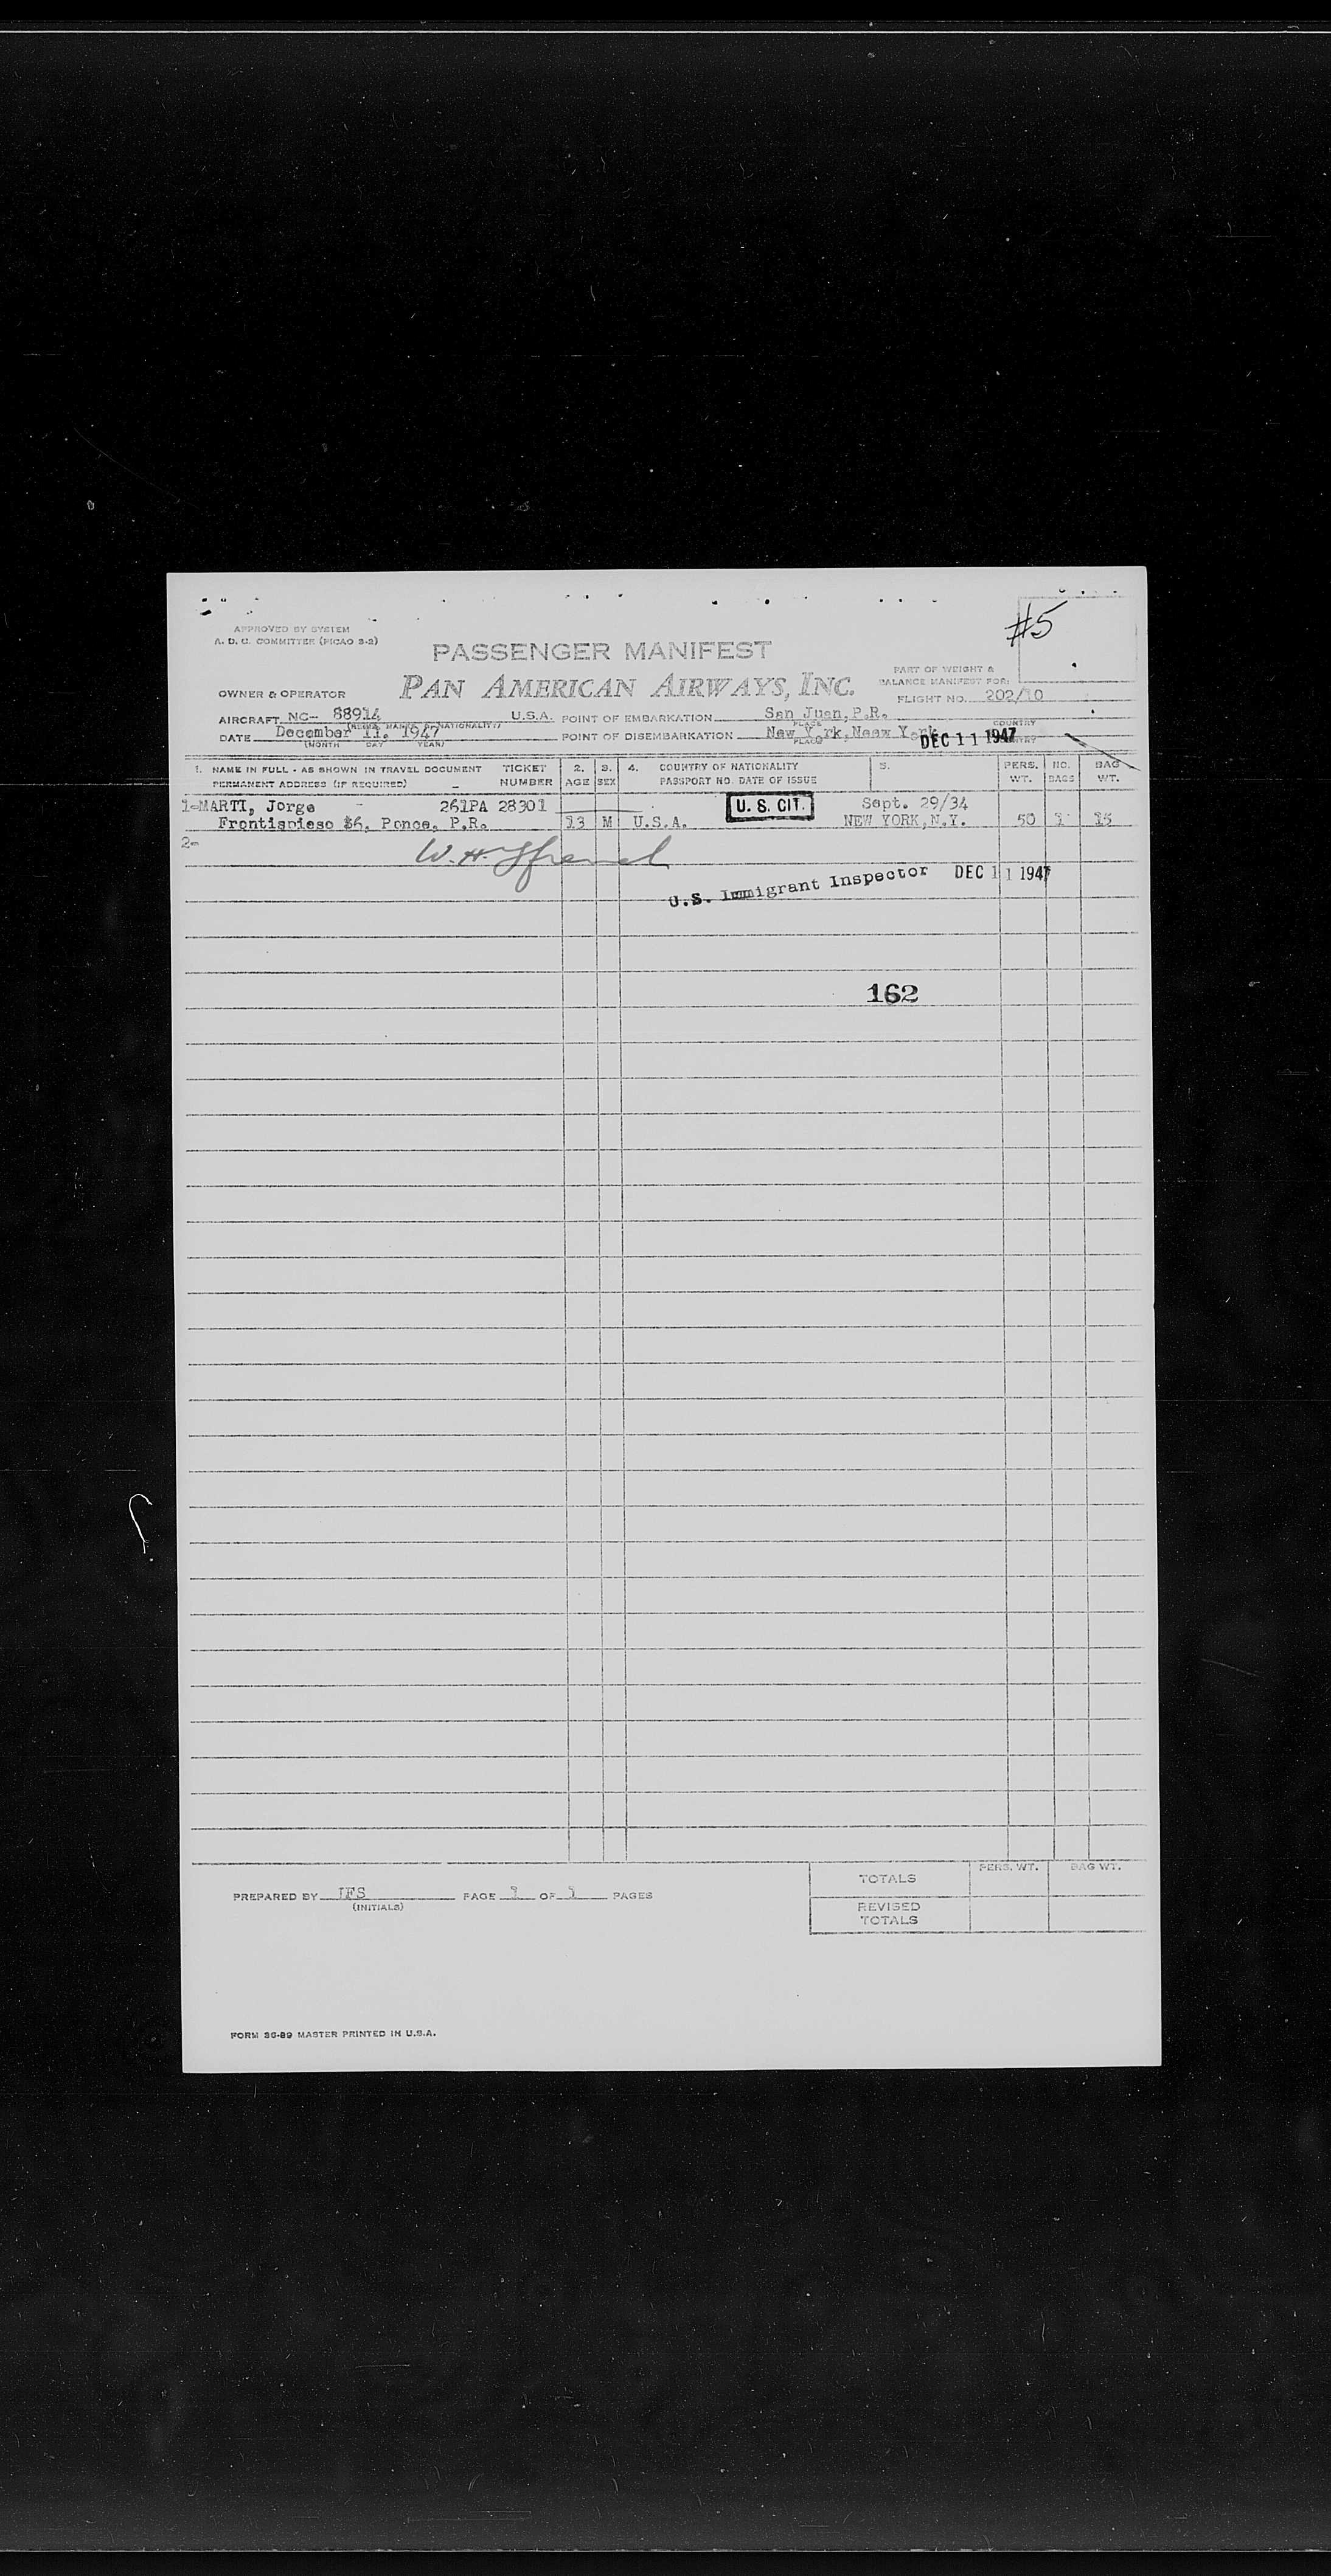 #5
APPROVED BY SYSTEM
A. D. C. COMMITTEE (PICAO 3-2)
PASSENGER MANIFEST
PART OF WEIGHT &
BALANCE MANIFEST FOR:
OWNER & OPERATOR PAN AMERICAN AIRWAYS, INC.
FLIGHT NO. 202/10
AIRCRAFT NC- 88914 U.S.A. POINT OF EMBARKATION San Juan, P.R.
PLACE COUNTRY
DATE December 11, 1947 POINT OF DISEMBARKATION New York, Neew York DEC 11 1947
(MONTH DAY YEAR) PLACE
1. NAME IN FULL - AS SHOWN IN TRAVEL DOCUMENT TICKET 2. 3. 4. COUNTRY OF NATIONALITY 5. PERS. NO. BAG
PERMANENT ADDRESS (IF REQUIRED) NUMBER AGE SEX PASSPORT NO. DATE OF ISSUE WT. BAGS WT.
1-MARTI, Jorge 261PA 28301 U. S. CIT. Sept. 29/34
Frontispieso #6, Ponce, P.R. 13 M U.S.A. NEW YORK, N.Y. 50 1 15
2-
W. H.
U.S. Immigrant Inspector DEC 11 1947
162
TOTALS PERS. WT. BAG WT.
PREPARED BY IFS PAGE 1 OF 1 PAGES
(INITIALS)
REVISED
TOTALS
FORM 36-89 MASTER PRINTED IN U.S.A.